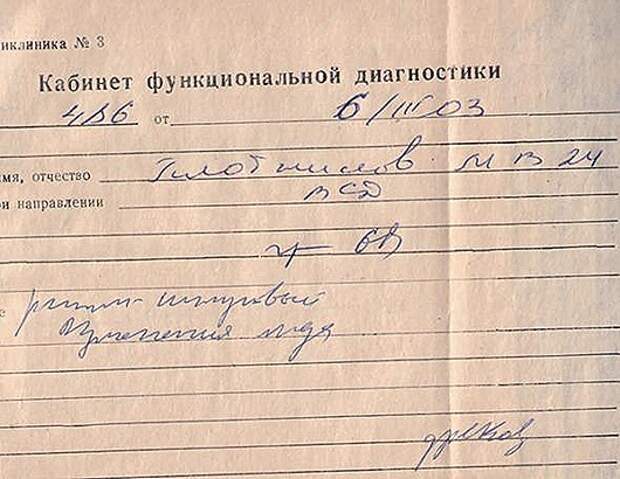 иклиника № 3
Кабинет функциональной диагностики
486 от 6/III 03
мя, отчество Плотников М В 24
ри направлении ВСД
68
ритм синусовый
изменения